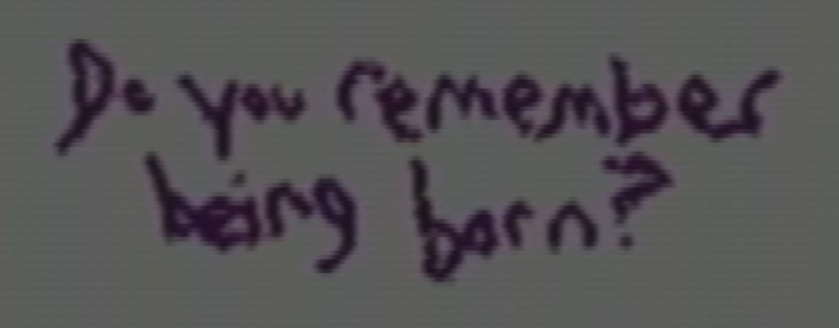 Do you remember
being born?